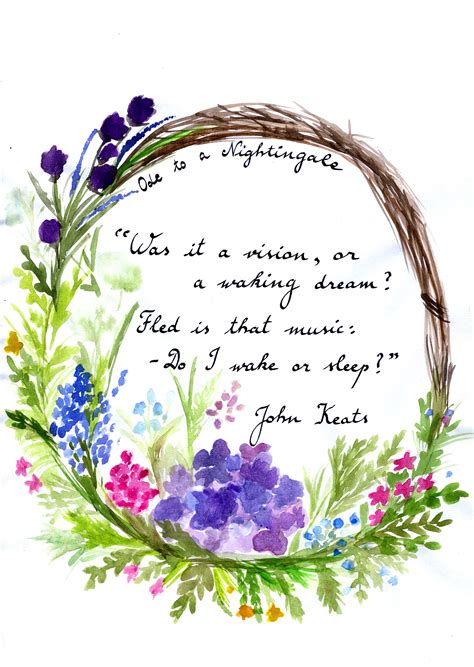 Ode to a Nightingale
“Was it a vision, or
a waking dream?
Fled is that music:
-Do I wake or sleep?”
John Keats